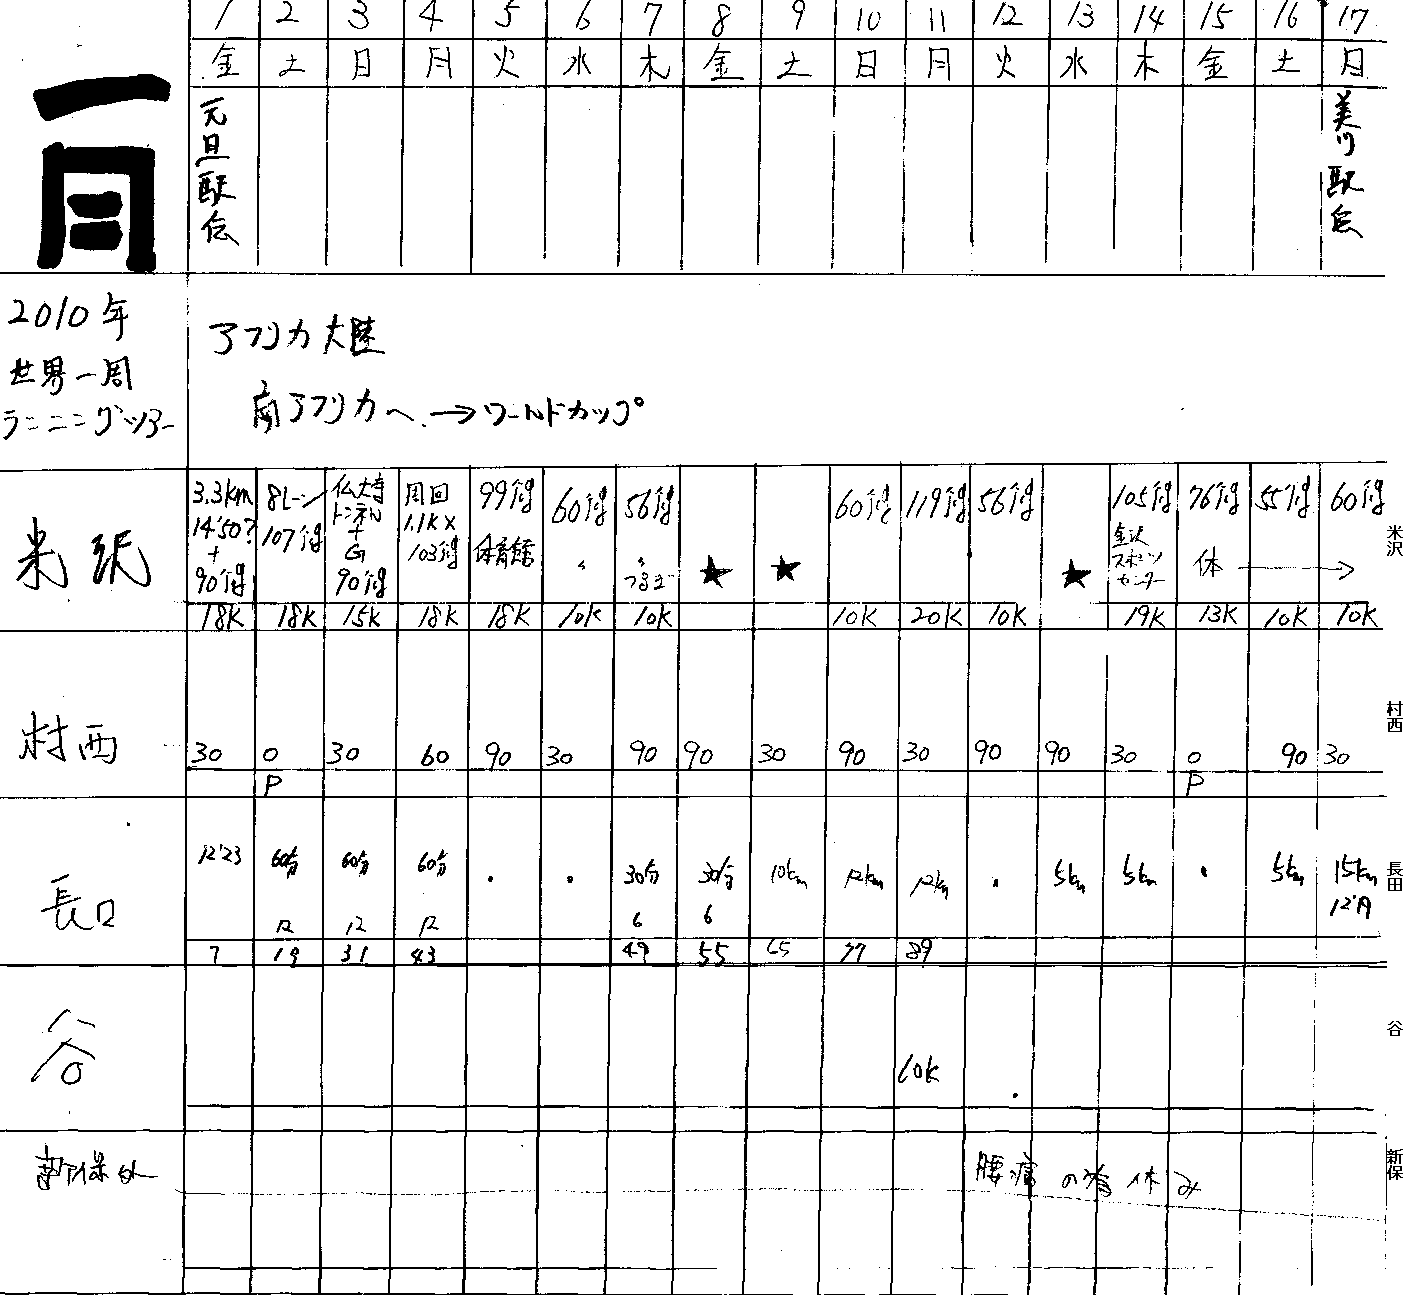 一月
1 2 3 4 5 6 7 8 9 10 11 12 13 14 15 16 17
金 土 日 月 火 水 木 金 土 日 月 火 水 木 金 土 日
元旦駅伝 美川駅伝
2010年
世界一周
ランニングツアー
アフリカ大陸
南アフリカへ → ワールドカップ
米沢
3.3km 14'50? + 90分 18K
8レーン 107分 18K
仏大寺 トンネル + G 90分 15K
周回 1.1K× 103分 18K
99分 体育館 18K
60分 〃 10K
56分 〃 つるぎ 10K
★
★
60分 10K
119分 20K
56分 10K
★
105分 金沢スポーツセンター 19K
76分 休 → 13K
55分 10K
60分 10K
米沢
村西
30 0 30 60 90 30 90 90 30 90 30 90 90 30 0 90 30
P P
村西
長田
12'23 60分 60分 60分 ・ ・ 30分 30分 10km 12km 12km ・ 5km 5km ・ 5km 15km
12 12 12 6 6
7 19 31 43 49 55 65 77 89
長田
谷
10K
谷
新保
腰痛の為休み
新保